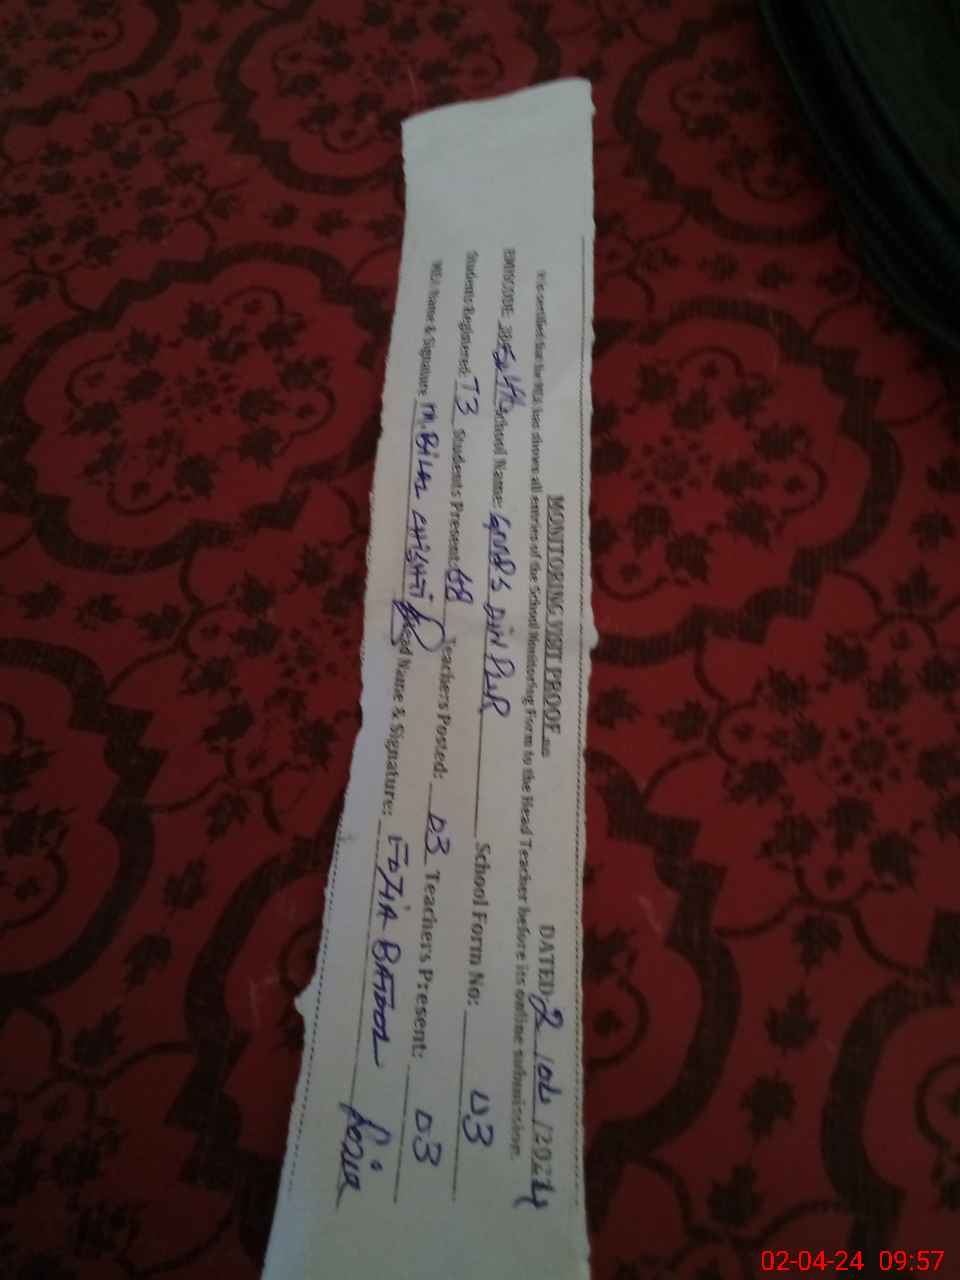 MONITORING VISIT PROOF DATED: 2 / 04 / 2024
It is certified that the MEA has shown all entries of the School Monitoring Form to the Head Teacher before its online submission.
EMISCODE: School Name: GMPS DIN PUR School Form No: 03
Students Registered: 73 Students Present: 68 Teachers Posted: 03 Teachers Present: 03
MEA Name & Signature M. BiLAL CHISHTi Head Name & Signature: FOZIA BATOOL Fozia
02-04-24 09:57